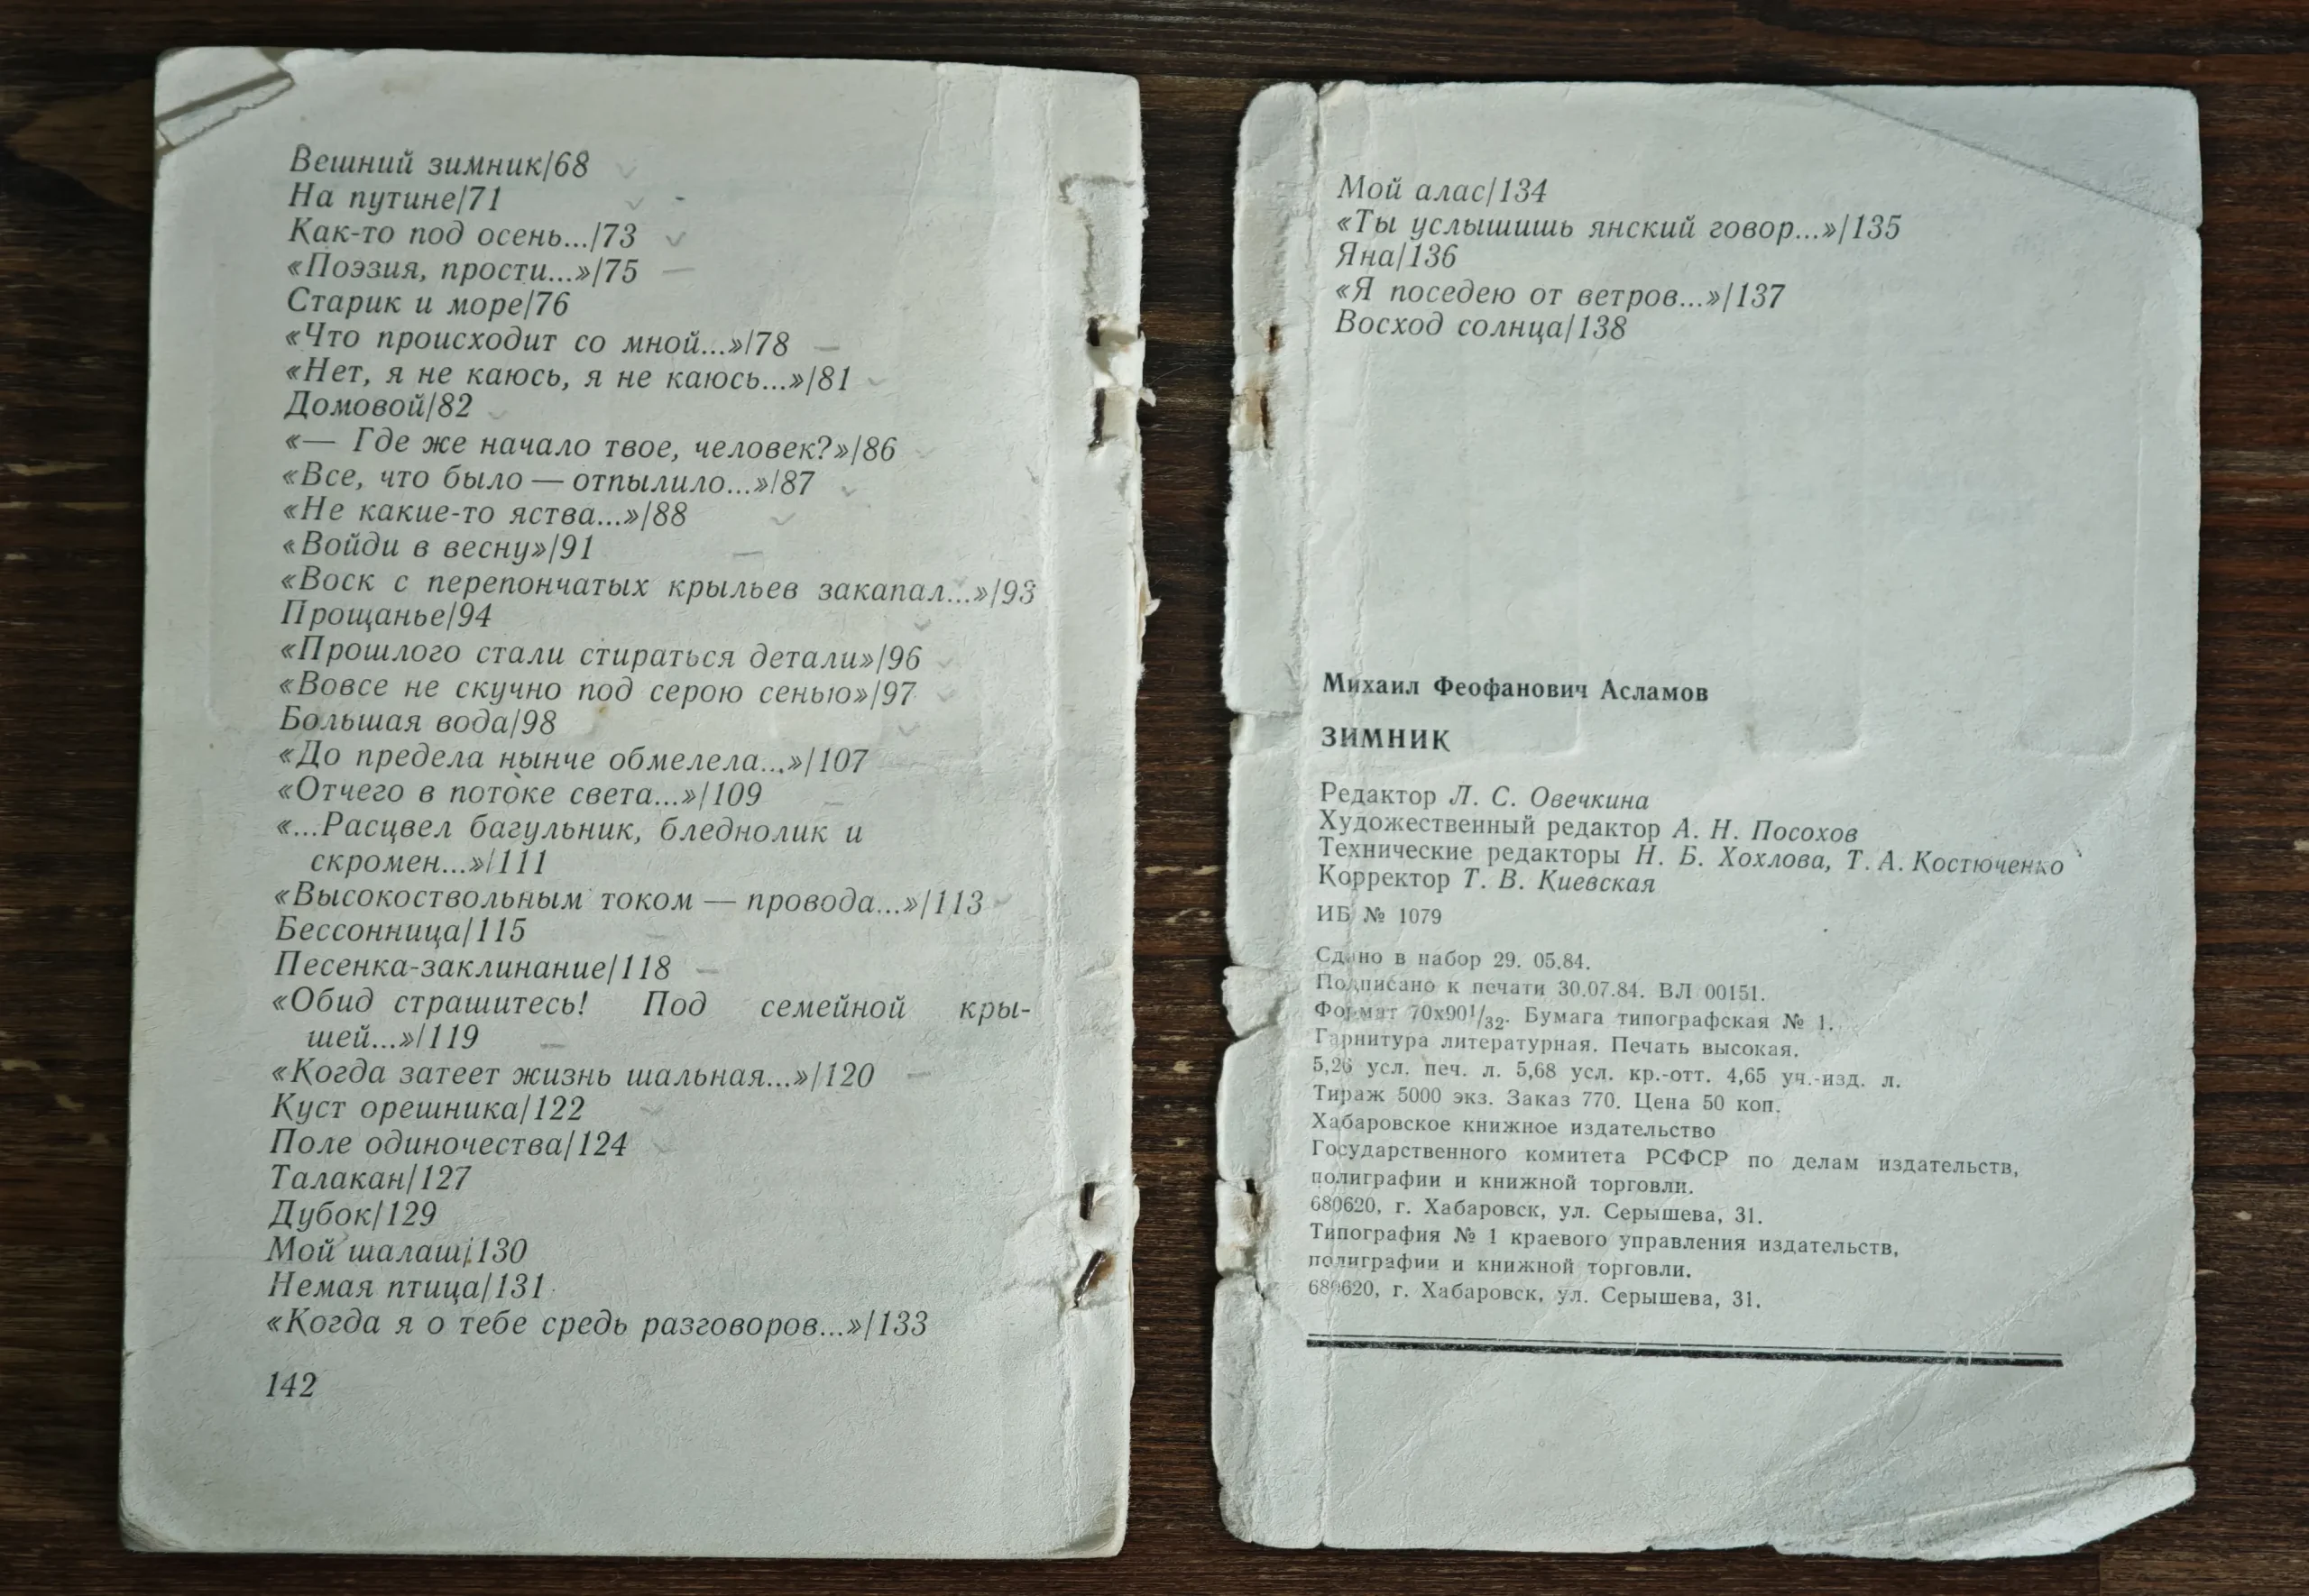 Вешний зимник/68
На путине/71
Как-то под осень.../73
«Поэзия, прости...»/75
Старик и море/76
«Что происходит со мной...»/78
«Нет, я не каюсь, я не каюсь...»/81
Домовой/82
«— Где же начало твое, человек?»/86
«Все, что было — отпылило...»/87
«Не какие-то яства...»/88
«Войди в весну»/91
«Воск с перепончатых крыльев закапал...»/93
Прощанье/94
«Прошлого стали стираться детали»/96
«Вовсе не скучно под серою сенью»/97
Большая вода/98
«До предела нынче обмелела...»/107
«Отчего в потоке света...»/109
«...Расцвел багульник, бледнолик и
скромен...»/111
«Высокоствольным током — провода...»/113
Бессонница/115
Песенка-заклинание/118
«Обид страшитесь! Под семейной кры-
шей...»/119
«Когда затеет жизнь шальная...»/120
Куст орешника/122
Поле одиночества/124
Талакан/127
Дубок/129
Мой шалаш/130
Немая птица/131
«Когда я о тебе средь разговоров...»/133
142
Мой алас/134
«Ты услышишь янский говор...»/135
Яна/136
«Я поседею от ветров...»/137
Восход солнца/138
Михаил Феофанович Асламов
ЗИМНИК
Редактор Л. С. Овечкина
Художественный редактор А. Н. Посохов
Технические редакторы Н. Б. Хохлова, Т. А. Костюченко
Корректор Т. В. Киевская
ИБ № 1079
Сдано в набор 29. 05.84.
Подписано к печати 30.07.84. ВЛ 00151.
Формат 70х90 1/32. Бумага типографская № 1.
Гарнитура литературная. Печать высокая.
5,26 усл. печ. л. 5,68 усл. кр.-отт. 4,65 уч.-изд. л.
Тираж 5000 экз. Заказ 770. Цена 50 коп.
Хабаровское книжное издательство
Государственного комитета РСФСР по делам издательств,
полиграфии и книжной торговли.
680620, г. Хабаровск, ул. Серышева, 31.
Типография № 1 краевого управления издательств,
полиграфии и книжной торговли.
680620, г. Хабаровск, ул. Серышева, 31.